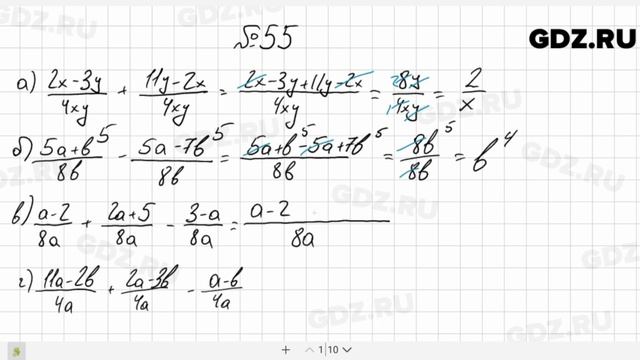 №55
GDZ.RU
а) (2x-3y)/(4xy) + (11y-2x)/(4xy) = (2x-3y+11y-2x)/(4xy) = (8y)/(4xy) = 2/x
б) (5a+b⁵)/(8b) - (5a-7b⁵)/(8b) = (5a+b⁵-5a+7b⁵)/(8b) = (8b⁵)/(8b) = b⁴
в) (a-2)/(8a) + (2a+5)/(8a) - (3-a)/(8a) = (a-2)/(8a)
г) (11a-2b)/(4a) + (2a-3b)/(4a) - (a-b)/(4a)
1|10